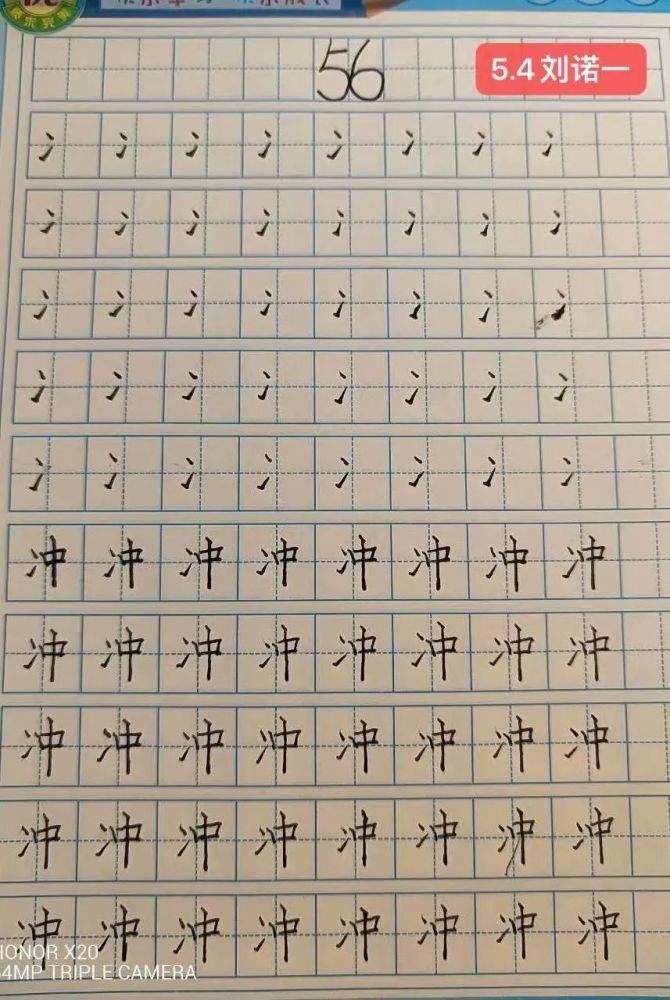 56
5.4 刘诺一
冫 冫 冫 冫 冫 冫 冫 冫
冫 冫 冫 冫 冫 冫 冫 冫
冫 冫 冫 冫 冫 冫 冫 冫
冫 冫 冫 冫 冫 冫 冫 冫
冫 冫 冫 冫 冫 冫 冫 冫
冲 冲 冲 冲 冲 冲 冲 冲
冲 冲 冲 冲 冲 冲 冲 冲
冲 冲 冲 冲 冲 冲 冲 冲
冲 冲 冲 冲 冲 冲 冲 冲
冲 冲 冲 冲 冲 冲 冲 冲
HONOR X20
64MP TRIPLE CAMERA